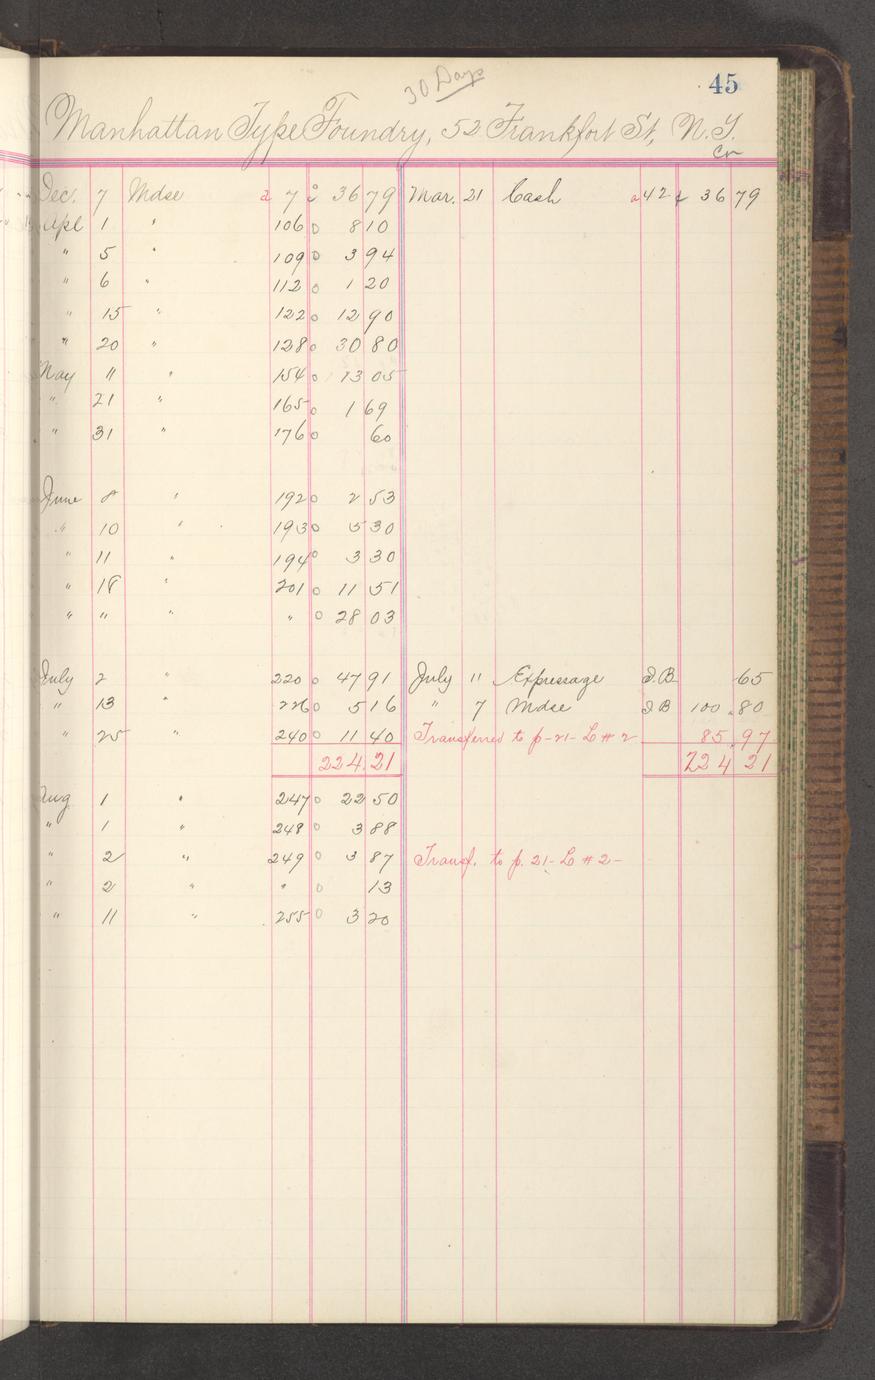 30 Days
45
Manhattan Type Foundry, 52 Frankfort St, N.Y.
Cr
Dec. 7 Mdse a 7 36 79 Mar. 21 Cash a 42 36 79
Apl 1 " 106 0 8 10
" 5 " 109 0 3 94
" 6 " 112 0 1 20
" 15 " 122 0 12 90
" 20 " 128 0 30 80
May 11 " 154 0 13 05
" 21 " 165 0 1 69
" 31 " 176 0 60
June 8 " 192 0 2 53
" 10 " 193 0 5 30
" 11 " 194 0 3 30
" 18 " 201 0 11 51
" " " " 0 28 03
July 2 " 220 0 47 91 July 11 Expressage J.B. 65
" 13 " 226 0 5 16 " 7 Mdse J B 100 .80
" 25 " 240 0 11 40 Transferred to p-21- L # 2 85.97
224.21 224 21
Aug 1 " 247 0 22 50
" 1 " 248 0 3 88
" 2 " 249 0 3 87 Transf. to p. 21- L # 2-
" 2 " " 0 13
" 11 " 255 0 3 20